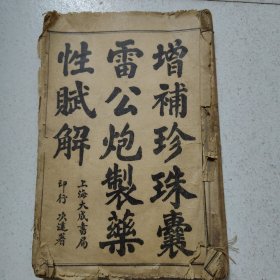 增補珍珠囊
雷公炮製藥
性賦解
上海大成書局
印行